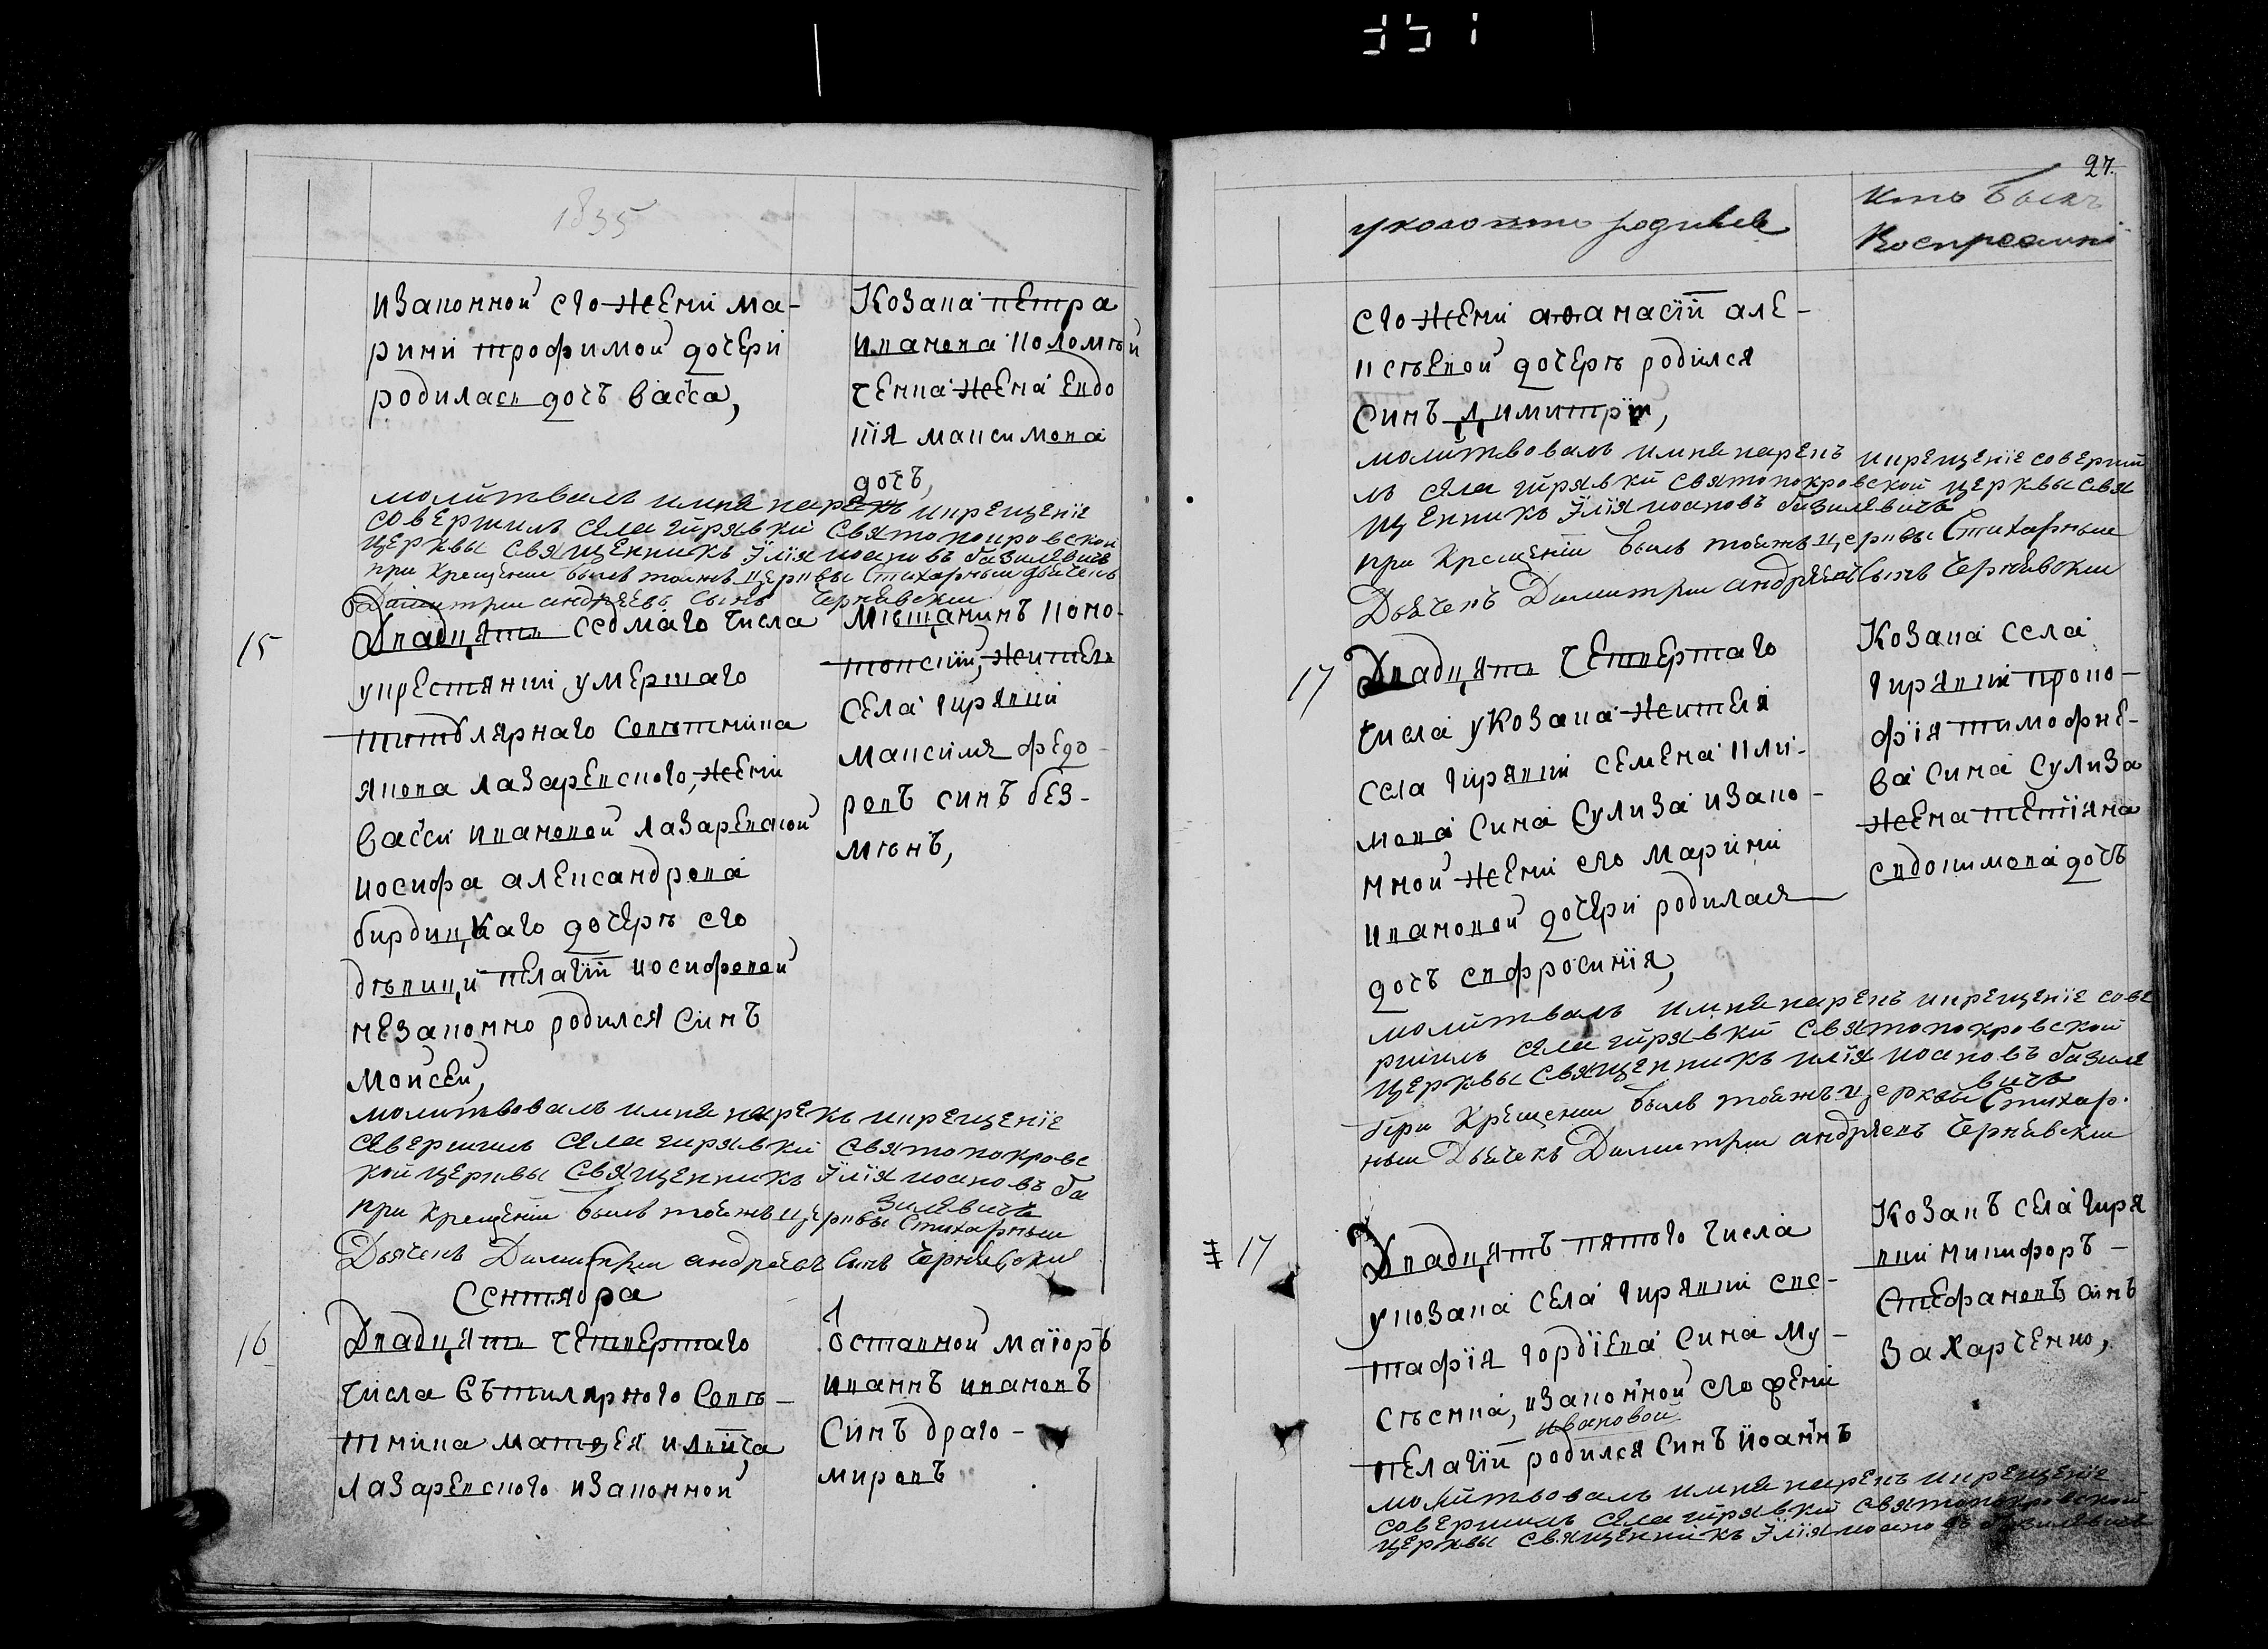 1835
изаконной его жени ма-
рини трофимой дочери
родилась дочъ васса,
Козака петра
иванова коломѣй
ченка жена евдо
кія максимова
дочъ,
молитвалъ имня нарекъ икрещеніе
совершилъ села гирявки святопокровской
церквы священникъ Їлїя иоановъ базилевичъ
при крещении былъ тоижъ церквы Стихарный дьячекъ
Димитрий андреевъ сынъ Чернявский
15
Двадцять седмаго числа
укрестянки умершаго
титблярнаго Совѣтника
якова лазаревского, жени
васси ивановой лазаревской
иосифа александрова
бирдицкаго дочерѣ его
дѣвици пелагїй иосифовой
незаконно родился Синъ
Моисей,
Мѣщанинъ коно-
топскїй, жителъ
села гирявки
максимъ федо-
ровъ синъ без-
мѣнъ,
молитвовалъ имня нарекъ икрещеніе
савершилъ села гирявки святопокровс
кой церквы Священникъ Їлїя иоановъ ба
зилевичъ
при крещении былъ тоижъ церквы Стихарный
Дьячекъ Димитрии андреевъ сынъ Чернявский
Сентябра
16
Двадцять четвертаго
числа Єътилярного Совѣ-
тника матѳея илича
лазаревского изаконной
Отставной маїоръ
иваннъ ивановъ
Синъ драго-
мировъ
27.
укого кто родился
кто былъ
Воспреемни
его жени аѳанасїй але-
ксѣевой дочерѣ родился
синъ димитрїй,
молитвовалъ имня нарекъ икрещеніе соверши
лъ села гирявки святопокровской церквы свя
щенникъ Їлїя иоановъ базилевичъ
при крещенїи былъ тоижъ церквы Стихарный
Дьячекъ Димитрии андреевъ сынъ Чернявский
17
Двадцять четвертаго
числа укозака жителя
села гирявки семена кли-
мова сина сулиза изако-
нной жени его Марини
ивановой дочери родилася
дочъ ефросинїя,
Козака села
гирявки проко-
фїя тимофѣе-
ва сина сулиза
жена тетїяна
евдокимова дочъ
молитвалъ имня нарекъ икрещенїе сове
ршилъ села гирявки святопокровской
церквы священникъ илїя иоановъ базиле
вичъ
при крещении былъ тоижъ церквы Стихар.
ный Дьячекъ Димитрии андреевъ Чернявский
17
Двадцятъ пятого числа
укозака села гирявки евс-
тафїя гордїева сина му-
сѣенка, изаконной его жени
ивановой
пелагїй родился Синъ Иоаннъ
Козакъ села гиря
вки никифоръ
стефановъ синъ
захарченко,
молитвовалъ имня нарекъ икрещенїе
совершилъ села гирявки святопокровской
церквы священникъ Їлїя иоановъ базилевичъ